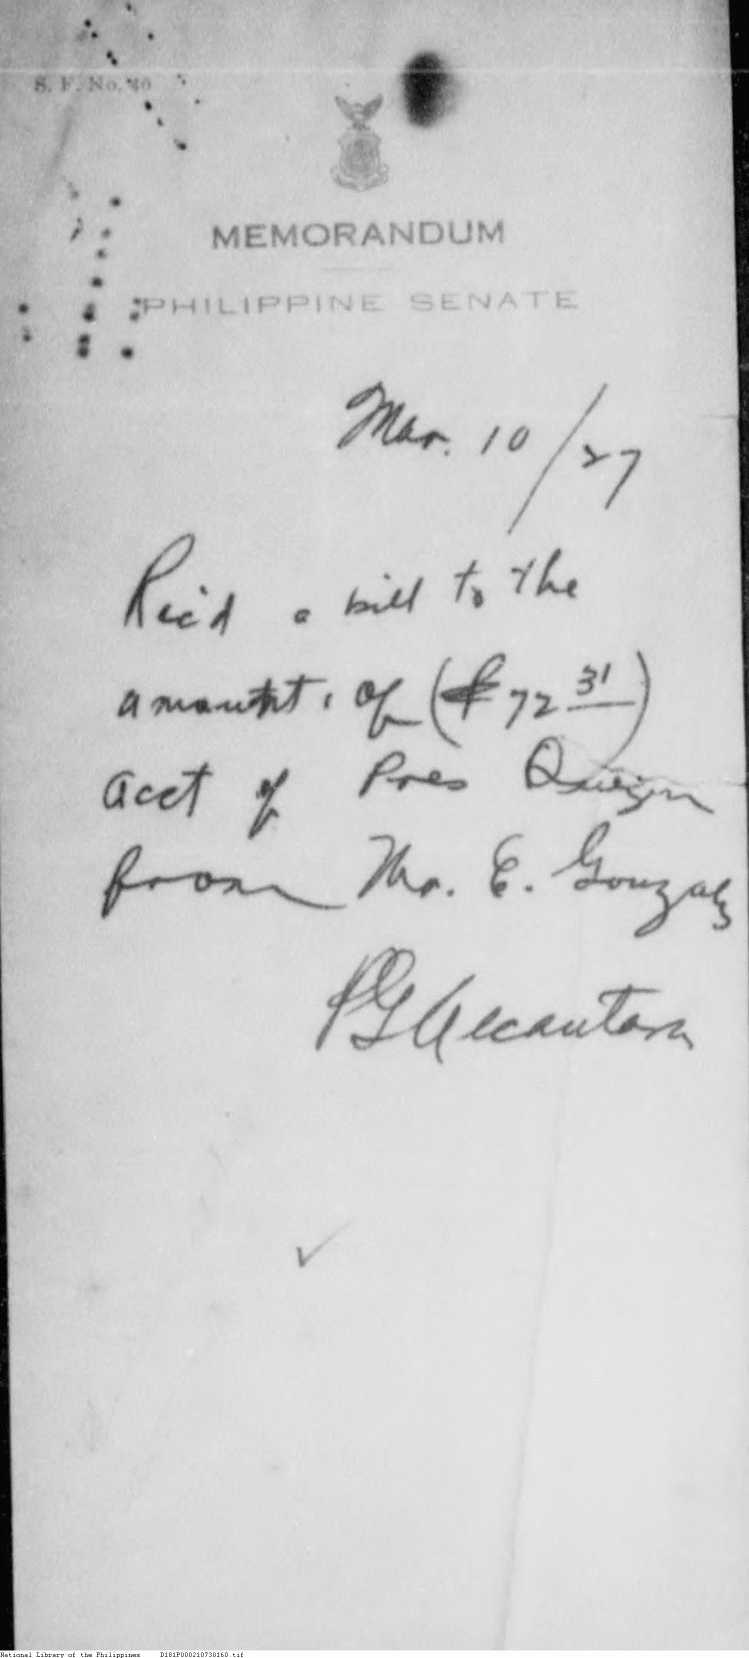 S. F. No. 30
MEMORANDUM
PHILIPPINE SENATE
Mar. 10/27
Rec'd a bill to the
amount of (₱72 31)
acct of Pres Quezon
from Mr. E. Gonzalez
PG Alcantara
National Library of the Philippines D181P000210738160.tif